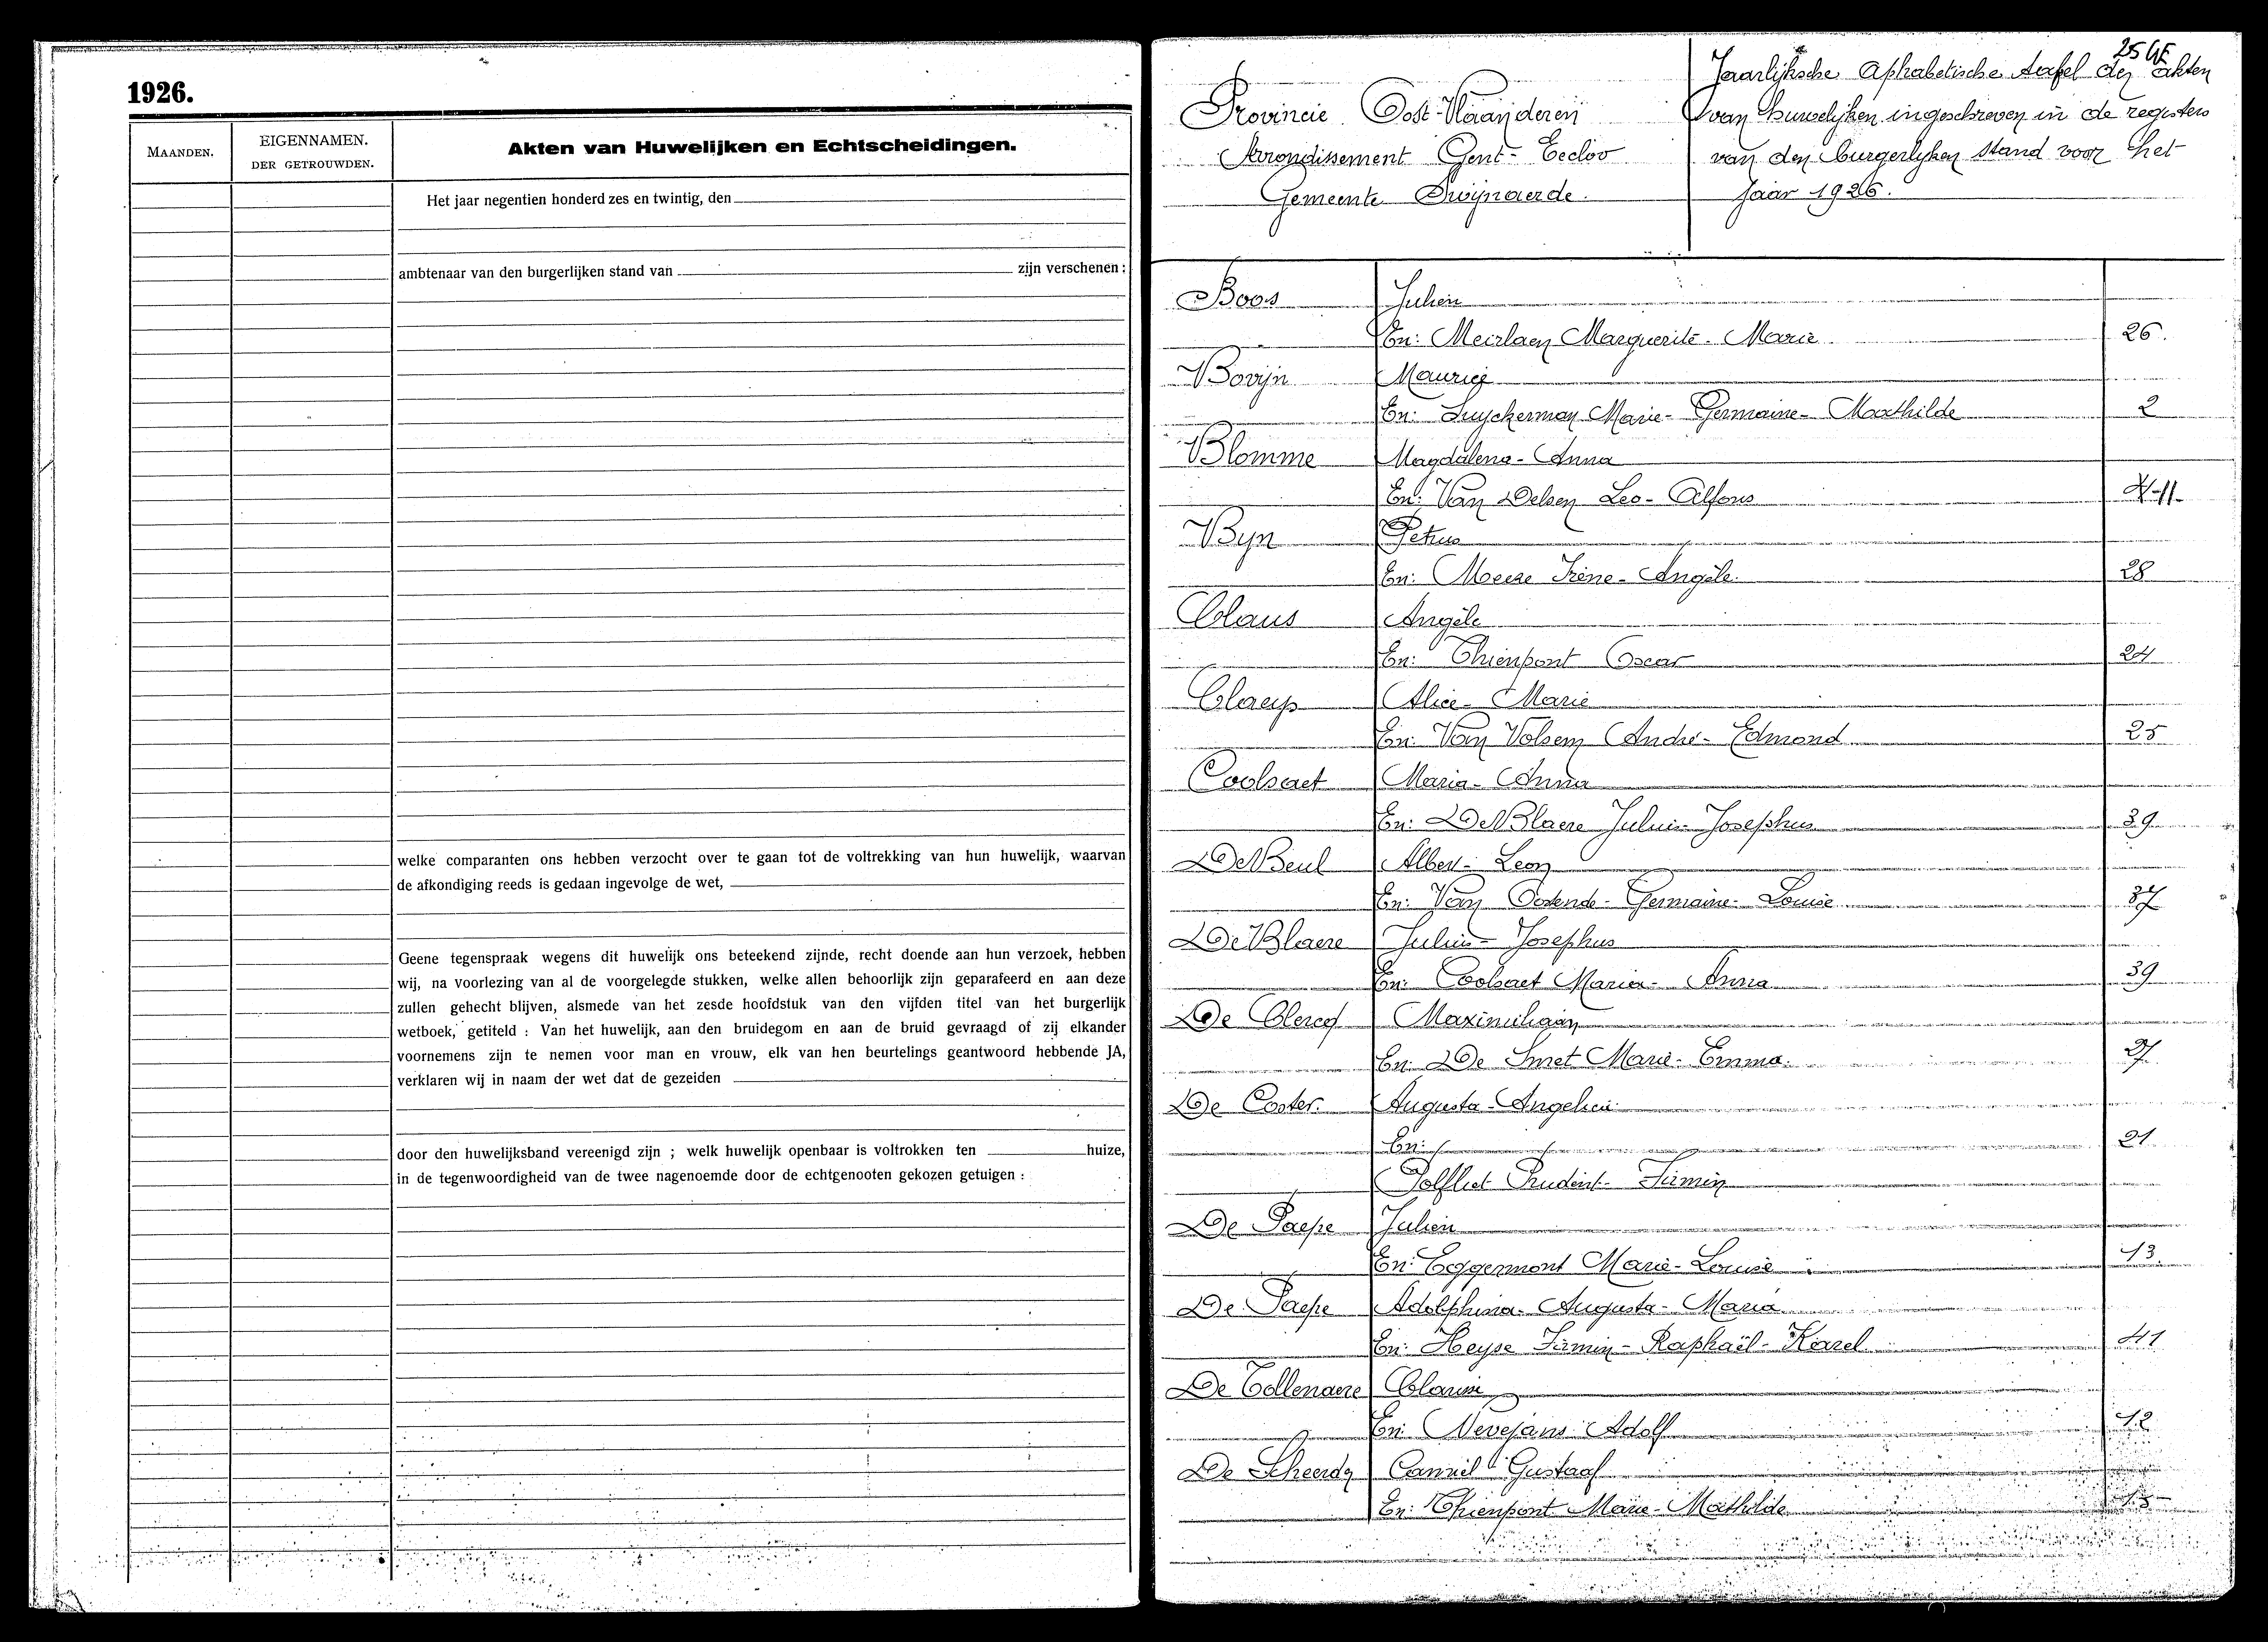 1926.
MAANDEN.
EIGENNAMEN.
DER GETROUWDEN.
Akten van Huwelijken en Echtscheidingen.
Het jaar negentien honderd zes en twintig, den
ambtenaar van den burgerlijken stand van zijn verschenen :
welke comparanten ons hebben verzocht over te gaan tot de voltrekking van hun huwelijk, waarvan
de afkondiging reeds is gedaan ingevolge de wet,
Geene tegenspraak wegens dit huwelijk ons beteekend zijnde, recht doende aan hun verzoek, hebben
wij, na voorlezing van al de voorgelegde stukken, welke allen behoorlijk zijn geparafeerd en aan deze
zullen gehecht blijven, alsmede van het zesde hoofdstuk van den vijfden titel van het burgerlijk
wetboek, getiteld : Van het huwelijk, aan den bruidegom en aan de bruid gevraagd of zij elkander
voornemens zijn te nemen voor man en vrouw, elk van hen beurtelings geantwoord hebbende JA,
verklaren wij in naam der wet dat de gezeiden
door den huwelijksband vereenigd zijn ; welk huwelijk openbaar is voltrokken ten huize,
in de tegenwoordigheid van de twee nagenoemde door de echtgenooten gekozen getuigen :
Provincie Oost-Vlaanderen
Arrondissement Gent-Eecloo
Gemeente Swijnaerde.
Jaarlijksche Aphabetische tafel der akten
van huwelijken ingeschreven in de registers
van den burgerlyken stand voor het
Jaar 1926.
Boos Julien
En: Meirlaen Marguerite-Marie 26.
Bovijn Maurice
En: Luyckerman Marie-Germaine-Mathilde 2
Blomme Magdalena-Anna
En: Van Delsen Leo-Alfons
Byn Petrus
En: Meere Irène-Angèle. 28
Claus Angèle
En: Thienpont Oscar 24
Claeys Alice-Marie
En: Van Volsem André-Edmond 25
Coolsaet Maria-Anna
En: De Blaere Julius-Josephus 39
De Beul Albert-Leon
En: Van Ostende-Germaine-Louise 37
De Blaere Julius-Josephus
En: Coolsaet Maria-Anna 39
De Clercq Maximiliaan
En: De Smet Marie-Emma.
De Coster. Augusta-Angelica
En: 21
Polfliet Prudent-Firmin
De Paepe Julien
En: Eggermont Marie-Louise 13.
De Paepe Adolphina-Augusta-Maria
En: Heyse Firmin-Raphaël-Karel 41
De Tollenaere Clarisse
En: Nevejans Adolf 12
De Scheerder Camiel Gustaaf
En: Thienpont Marie-Mathilde 15